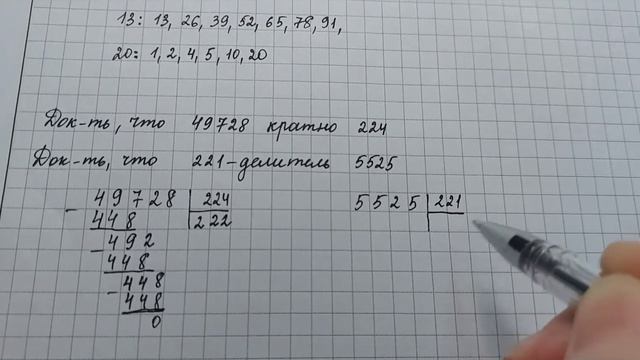 13: 13, 26, 39, 52, 65, 78, 91,
20: 1, 2, 4, 5, 10, 20
Док-ть, что 49728 кратно 224
Док-ть, что 221-делитель 5525
- 49728 224
448 222
- 492
448
- 448
448
0
5525 221